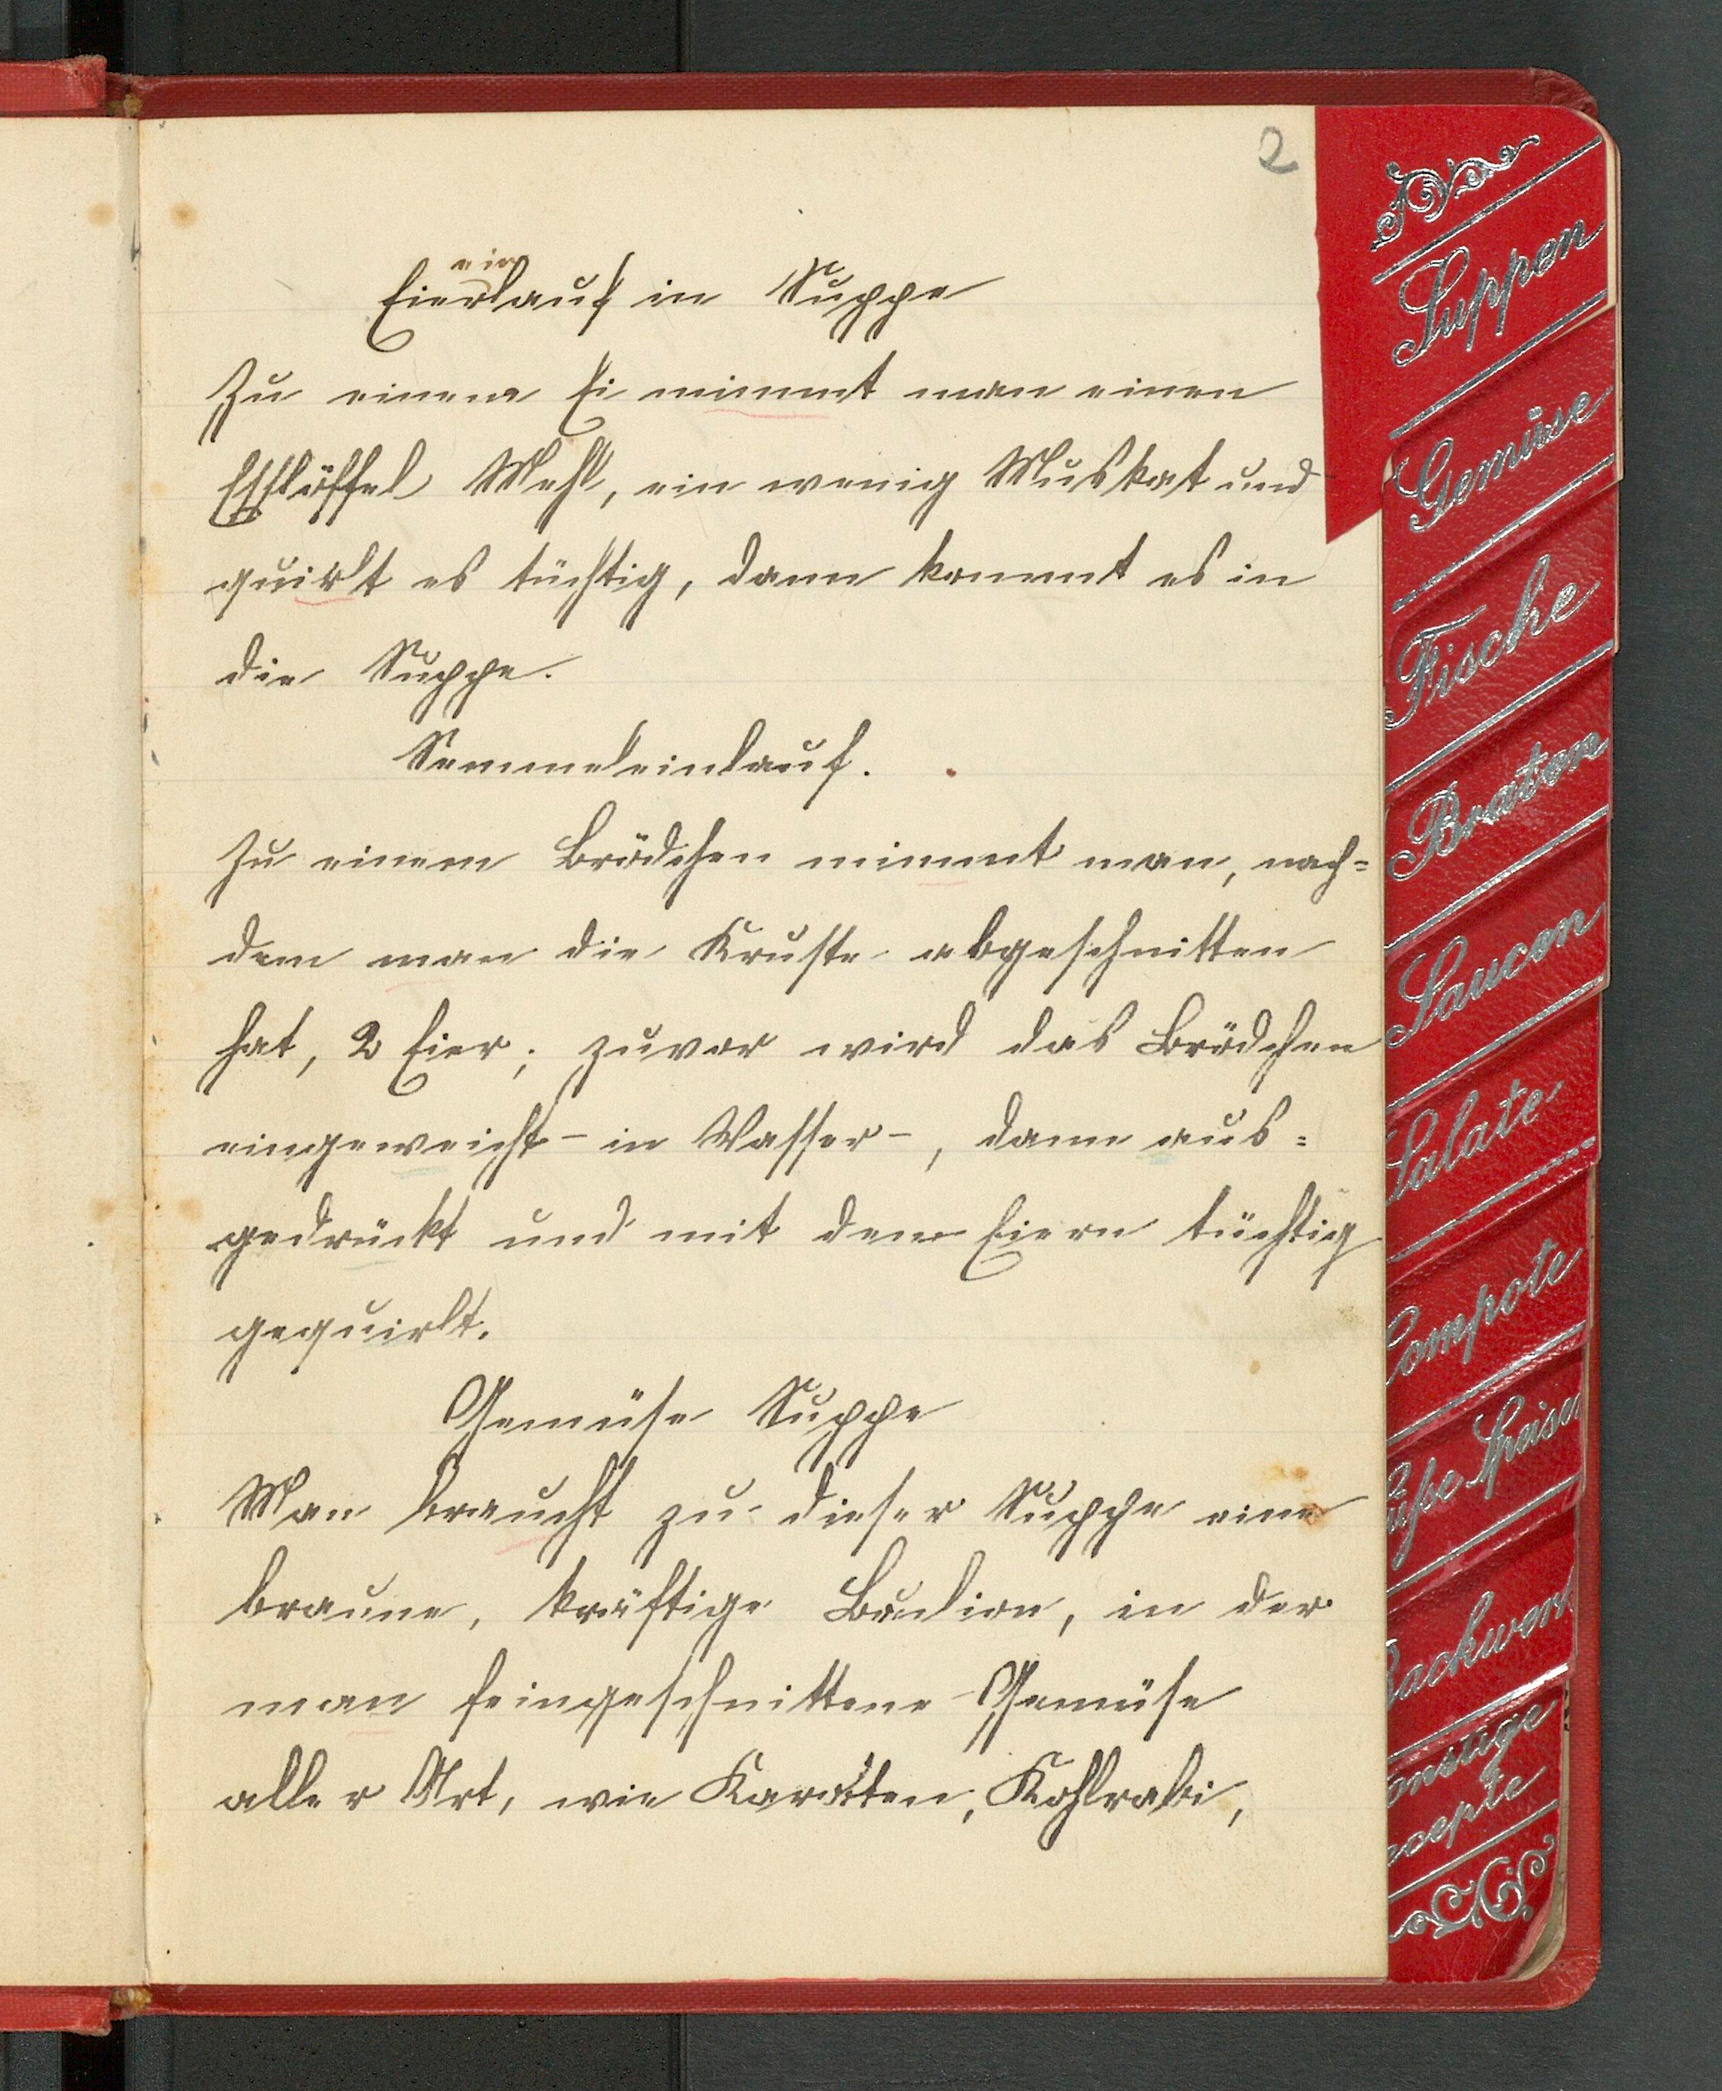 2
Eiereinlauf in Suppe
Zu einem Ei nimmt man einen
Esslöffel Mehl, ein wenig Muskat und
quirlt es tüchtig, dann kommt es in
die Suppe.
Semmeleinlauf.
Zu einem Brödchen nimmt man, nach=
dem man die Kruste abgeschnitten
hat, 2 Eier; zuvor wird das Brödchen
eingeweicht - in Wasser -, dann aus=
gedrückt und mit den Eiern tüchtig
gequirlt.
Gemüse Suppe
Man braucht zu dieser Suppe eine
braune, kräftige Bulion, in der
man feingeschnittene Gemüse
aller Art, wie Karotten, Kohlrabi,
Suppen
Gemüse
Fische
Braten
Saucen
Salate
Compote
üße Speisen
Backwerk
onstige
ecepte